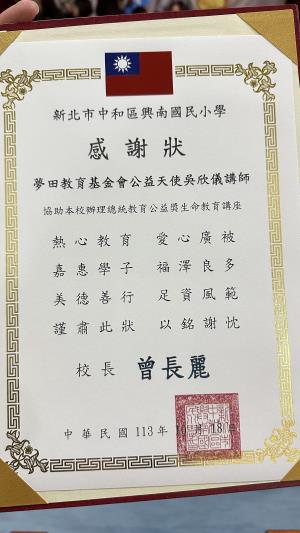 新北市中和區興南國民小學
感謝狀
夢田教育基金會公益天使吳欣儀講師
協助本校辦理總統教育公益獎生命教育講座
熱心教育 愛心廣被
嘉惠學子 福澤良多
美德善行 足資風範
謹肅此狀 以銘謝忱
校長 曾長麗
中華民國 113 年 10 月 18 日